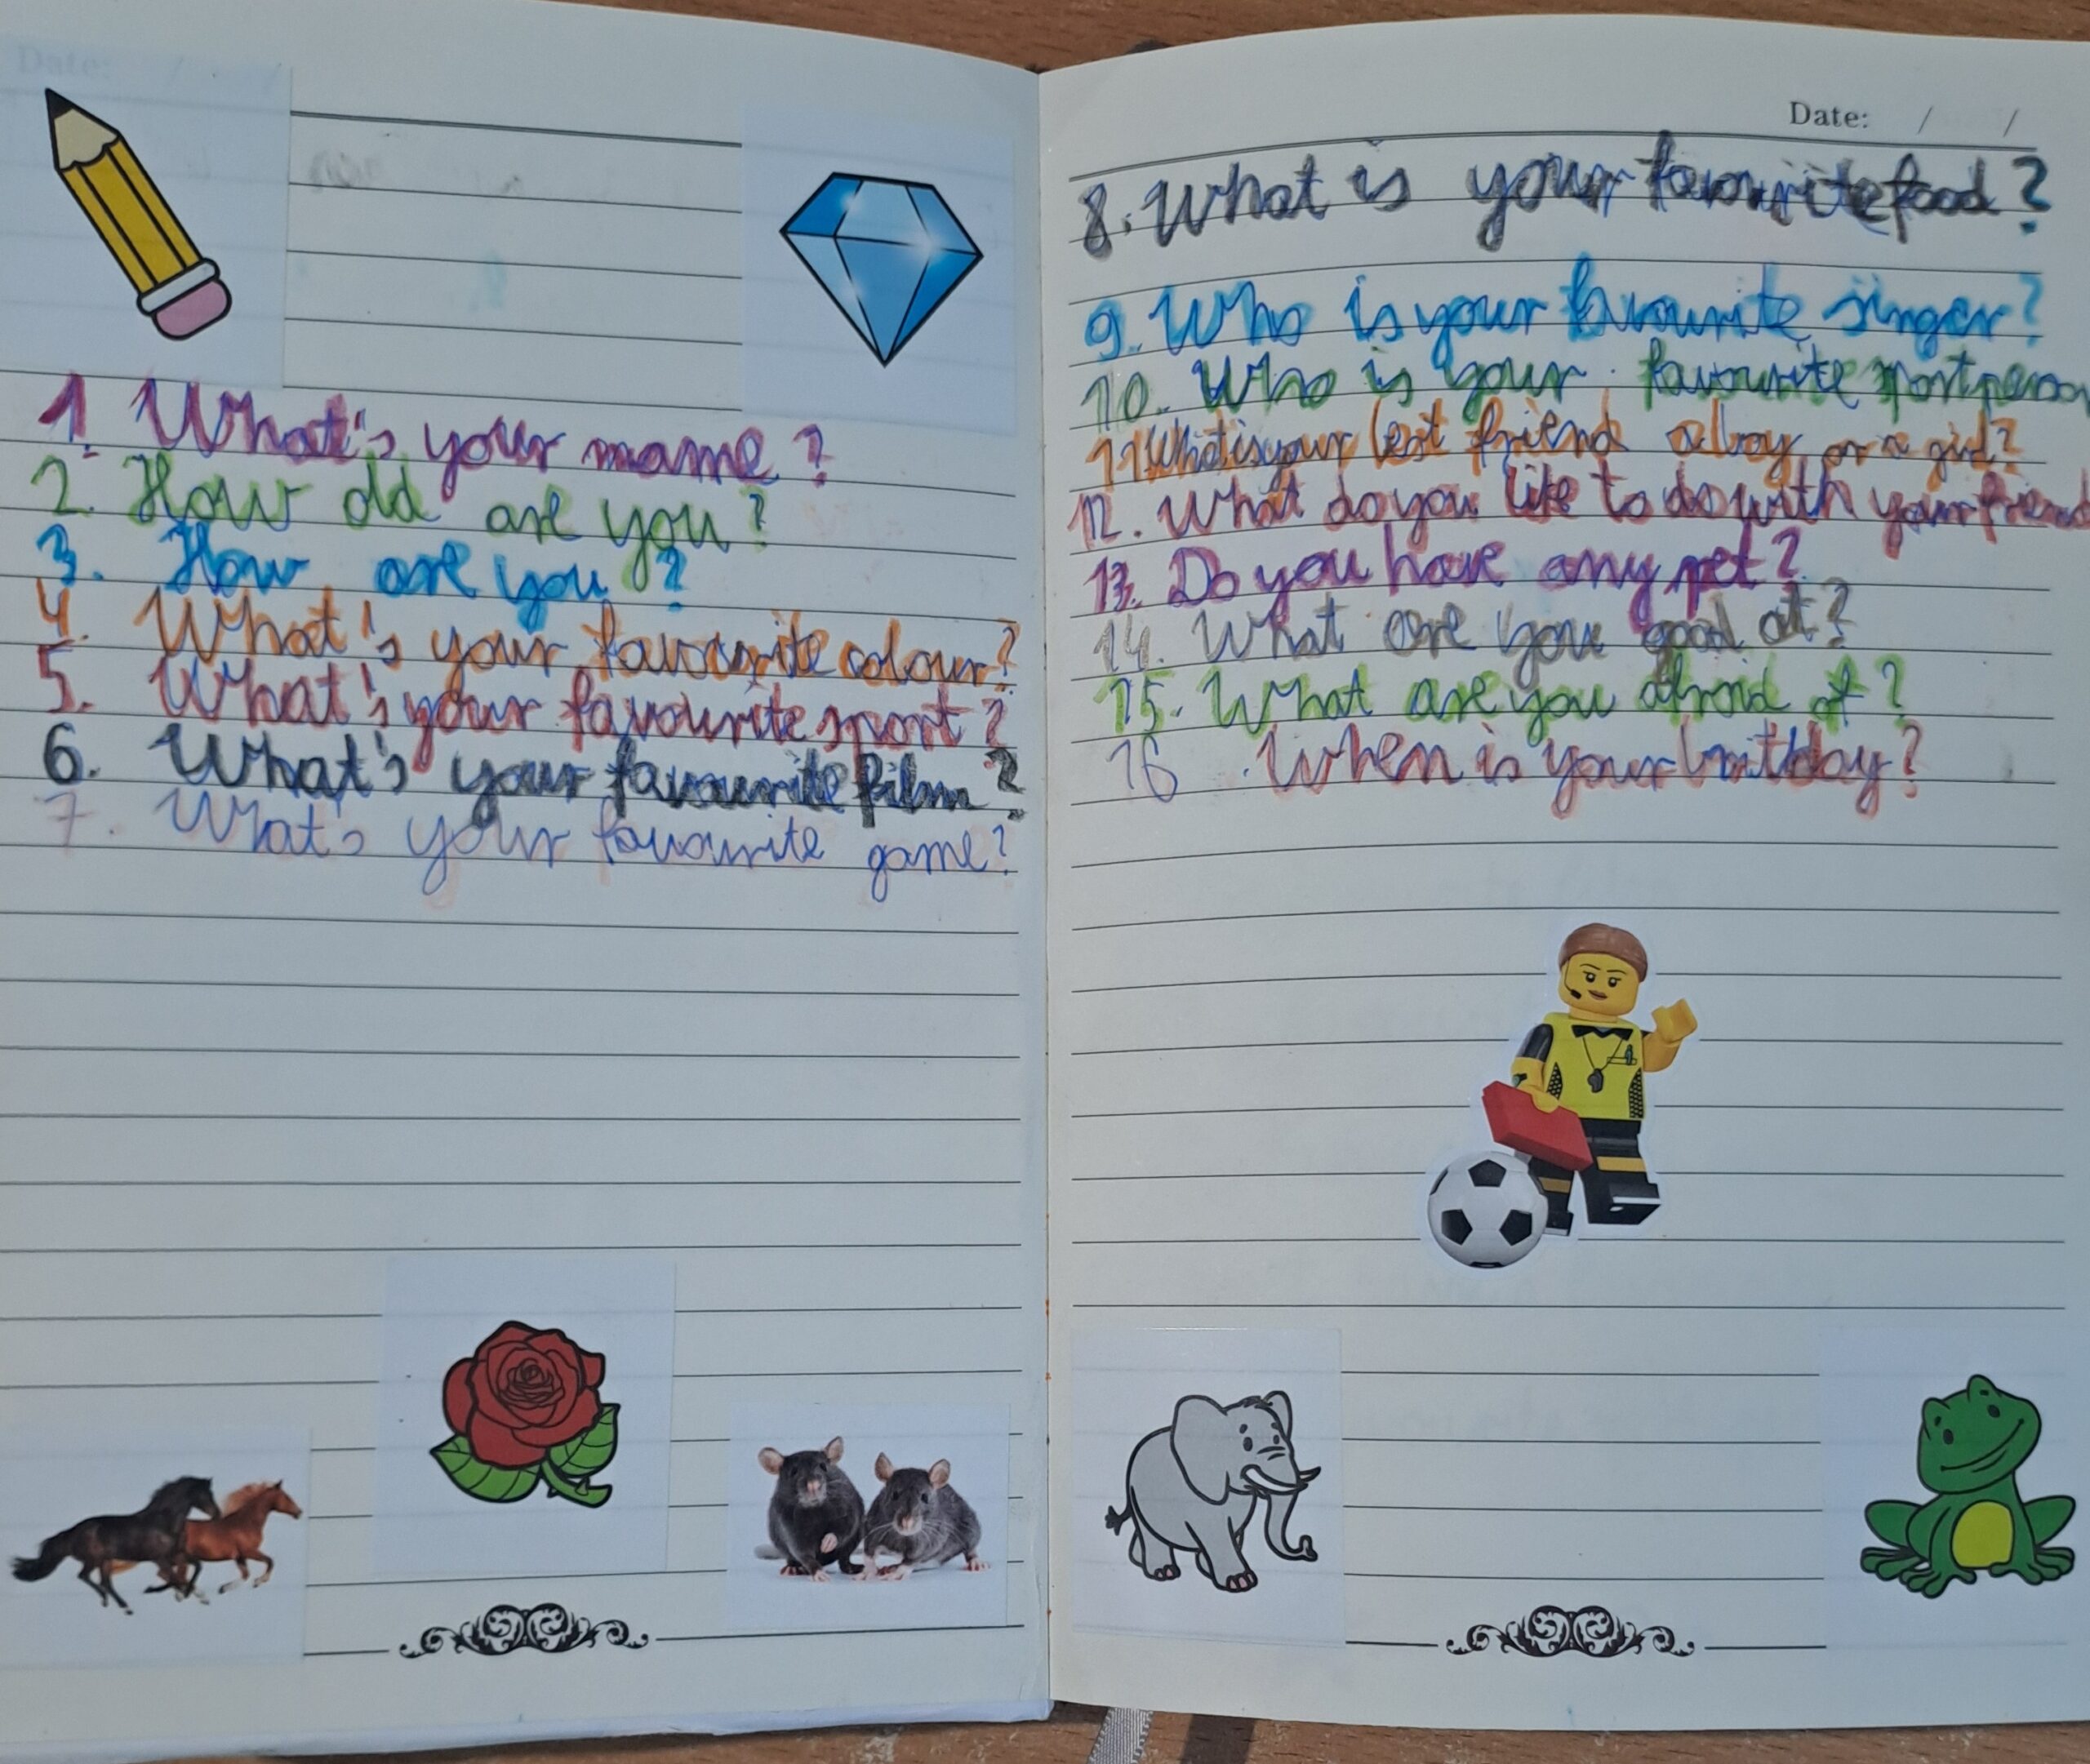 Date: / /
1. What's your name?
2. How old are you?
3. How are you?
4. What's your favourite colour?
5. What's your favourite sport?
6. What's your favourite film?
7. What's your favourite game?
Date: / /
8. What is your favourite food?
9. Who is your favourite singer?
10. Who is your favourite sportperson
11. What is your best friend a boy or a girl?
12. What do you like to do with your friend
13. Do you have any pet?
14. What are you good at?
15. What are you afraid of?
16. When is your birthday?